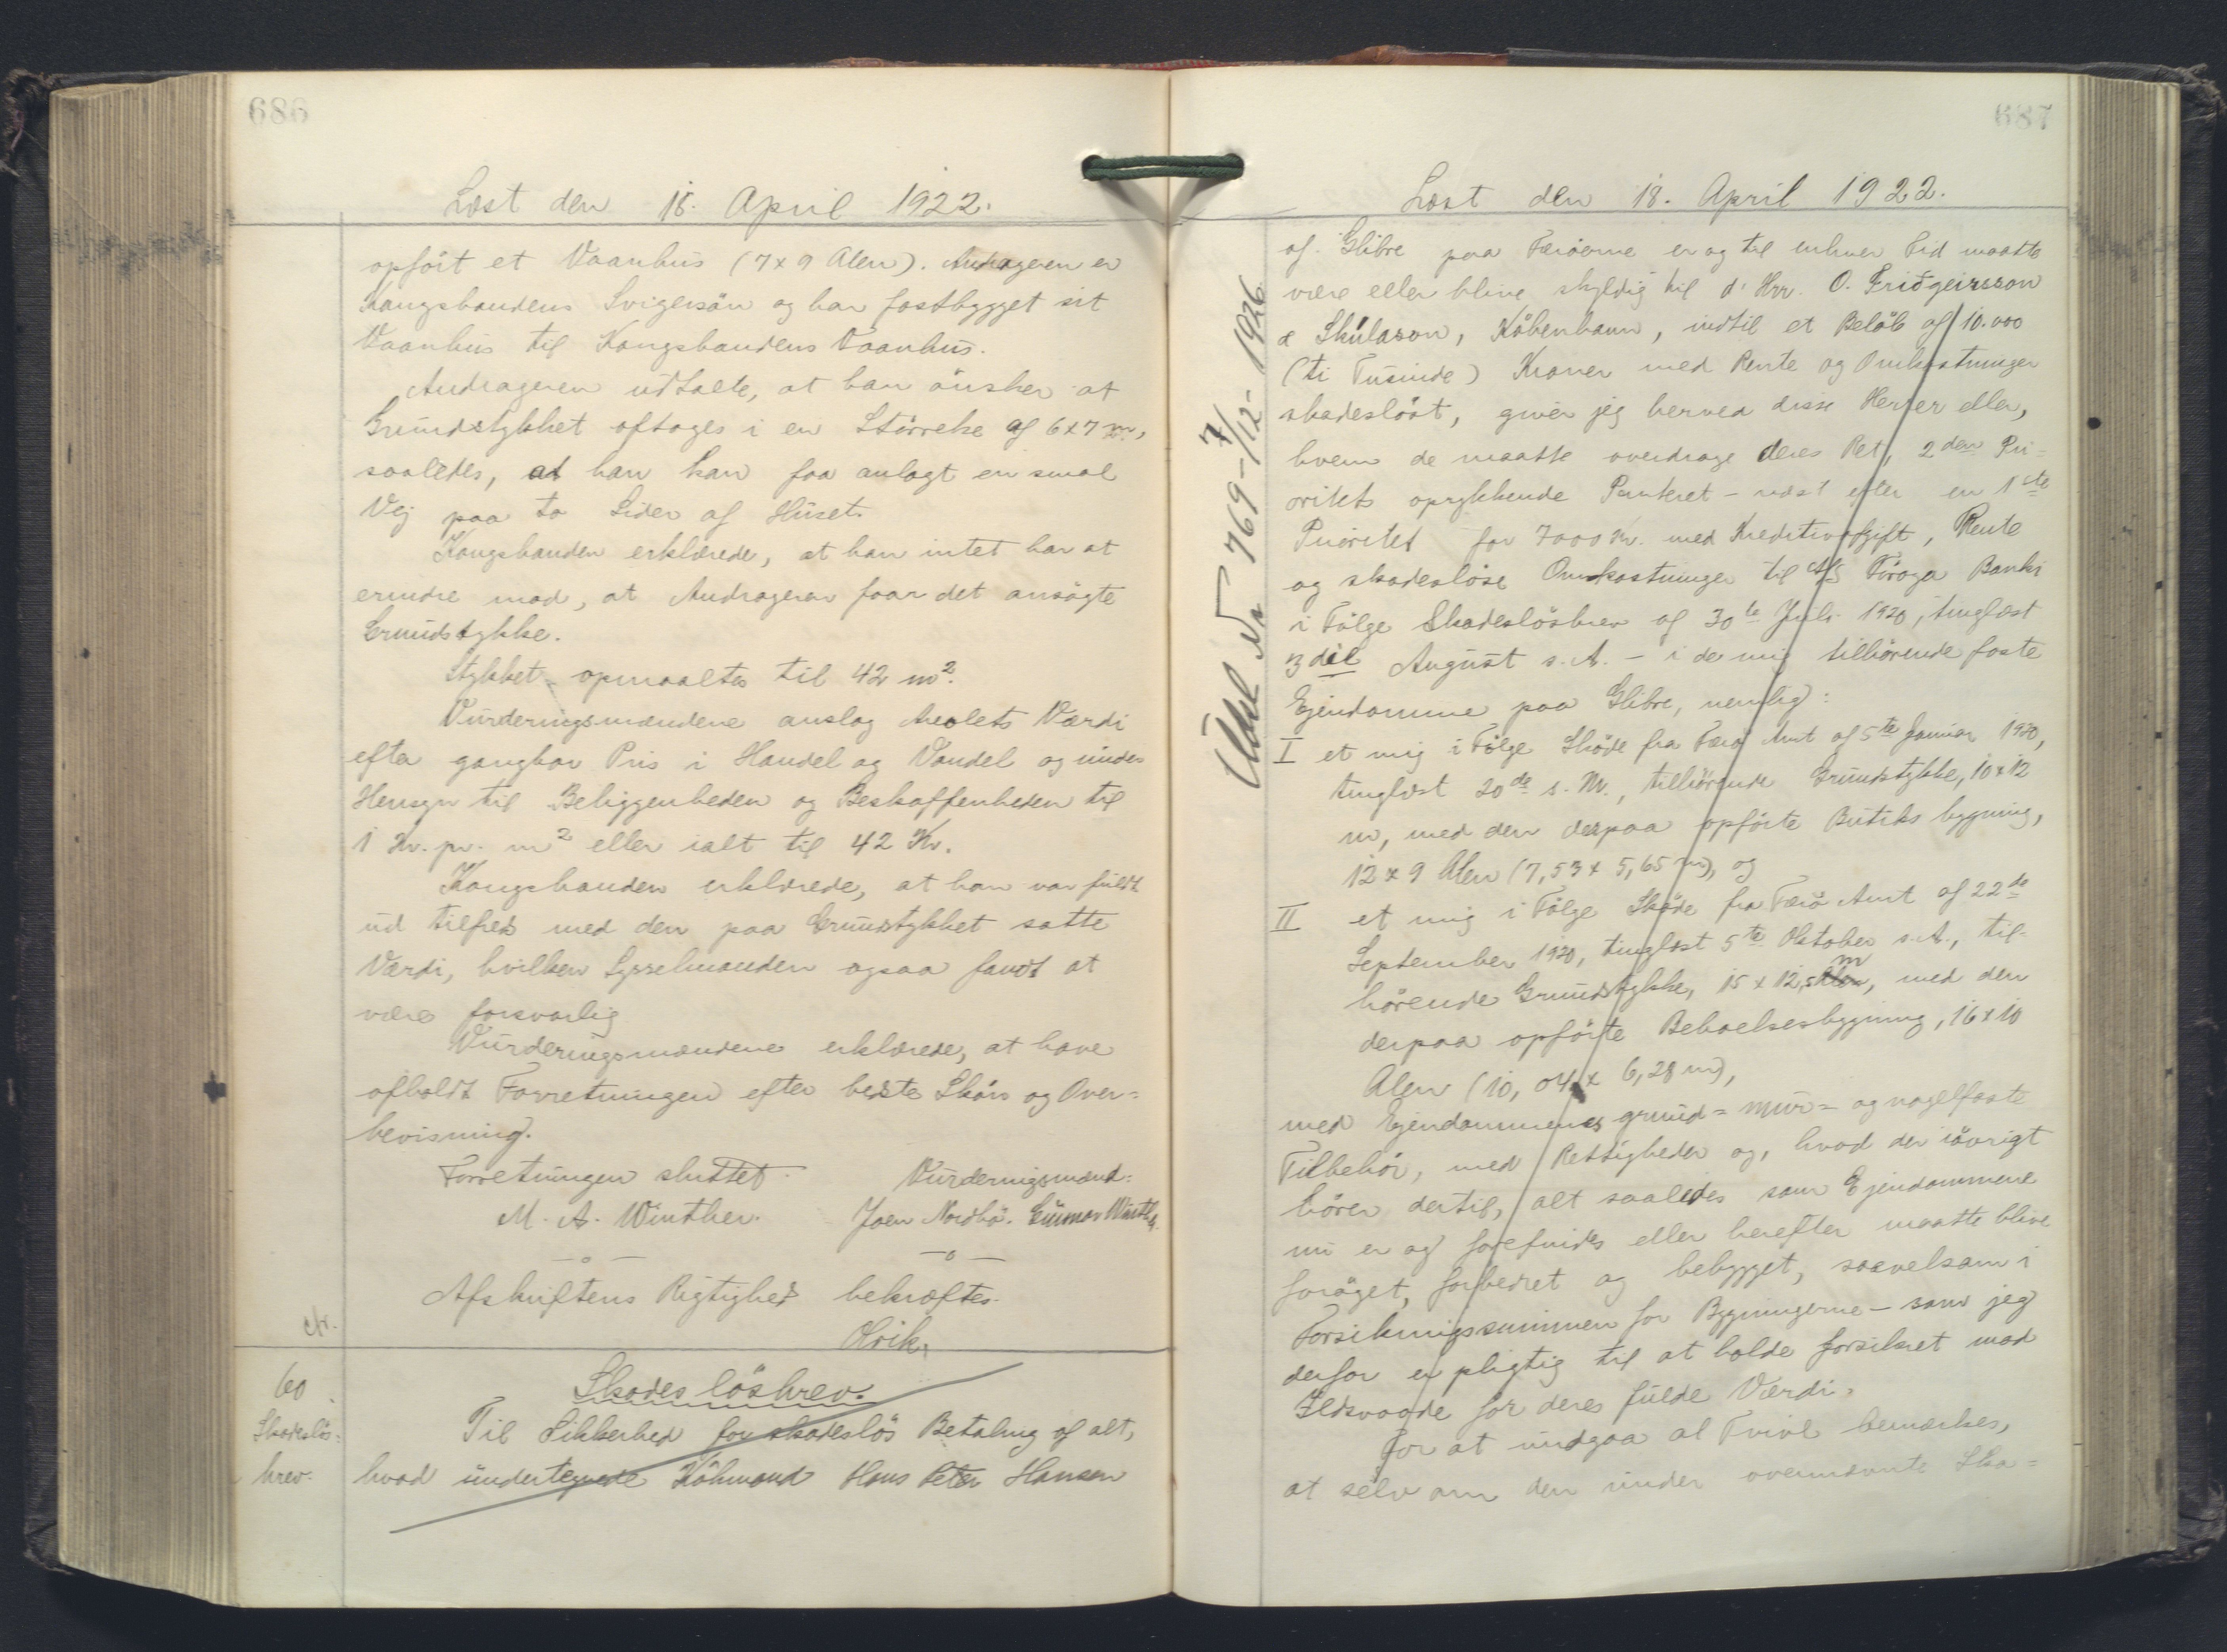 686
Læst den 18. April 1922.
opført et Vaanhus (7 x 9 Alen). Andrageren er
Kongsbondens Svigersøn og har fastbygget sit
Vaanhus til Kongsbondens Vaanhus.
Andrageren udtalte, at han ønsker at
Grundstykket aftages i en Størrelse af 6x7 m,
saaledes, at han kan faa anlagt en smal
Vej paa to Sider af Huset.
Kongsbonden erklærede, at han intet har at
erindre mod, at Andrageren faar det ansøgte
Grundstykke.
Stykket opmaaltes til 42 m².
Vurderingsmændene anslog Arealets Værdi
efter gangbar Pris i Handel og Vandel og under
Hensyn til Beliggenheden og Beskaffenheden til
1 Kr. pr. m² eller ialt til 42 Kr.
Kongsbonden erklærede, at han var fuldt
ud tilfreds med den paa Grundstykket satte
Værdi, hvilken Sysselmanden ogsaa fandt at
være forsvarlig
Vurderingsmændene erklærede, at have
afholdt Forretningen efter bedste Skøn og Over=
bevisning.
Forretningen sluttet. Vurderingsmænd:
M. A. Winther. Joen Nordbø. Gunnar Winther
—o— —o—
Afskriftens Rigtighed bekræftes.
60
Skadesløs=
brev.
Skadesløsbrev.
Til Sikkerhed for skadesløs Betaling af alt,
hvad undertegnede Købmand Hans Peter Hansen
687
Læst den 18. April 1922.
Udsl Nr 769 - 7/12 - 1926
af Glibre paa Færøerne er og til enhver Tid maatte
være eller blive skyldig til d' Hrr. O. Friðgeirsson
& Skúlason, København, indtil et Beløb af 10.000
(ti Tusinde) Kroner med Rente og Omkostninger
skadesløst, giver jeg herved disse Herrer eller,
hvem de maatte overdrage deres Ret, 2den Pri=
oritets oprykkende Panteret - næst efter en 1ste
Prioritet for 7000 Kr. med Kreditivafgift, Rente
og skadesløse Omkostninger til A/S Føroya Banki
i Følge Skadesløsbrev af 30te Juli 1920, tinglæst
3die August s. A. - i de mig tilhørende faste
Ejendomme paa Glibre, nemlig:
I et mig i Følge Skøde fra Færø Amt af 5te Januar 1920,
tinglæst 20de s. M., tilhørende Grundstykke, 10x12
m, med den derpaa opførte Butiks bygning,
12 x 9 Alen (7,53 x 5,65 m), og
II et mig i Følge Skøde fra Færø Amt af 22de
September 1920, tinglæst 5te Oktober s. A., til=
hørende Grundstykke, 15 x 12,5 m, med den
derpaa opførte Beboelsesbygning, 16 x 10
Alen (10,04 x 6,28 m),
med Ejendommenes grund= mur= og nagelfaste
Tilbehør, med Rettigheder og, hvad der iøvrigt
hører dertil, alt saaledes som Ejendommene
nu er og forefindes eller herefter maatte blive
forøget, forbedret og bebygget, saavelsom i
Forsikringssummen for Bygningerne - som jeg
derfor er pligtig til at holde forsikret mod
Ildsvaade for deres fulde Værdi.
For at undgaa al Tvivl bemærkes,
at selv om den under ovennævnte Ska=